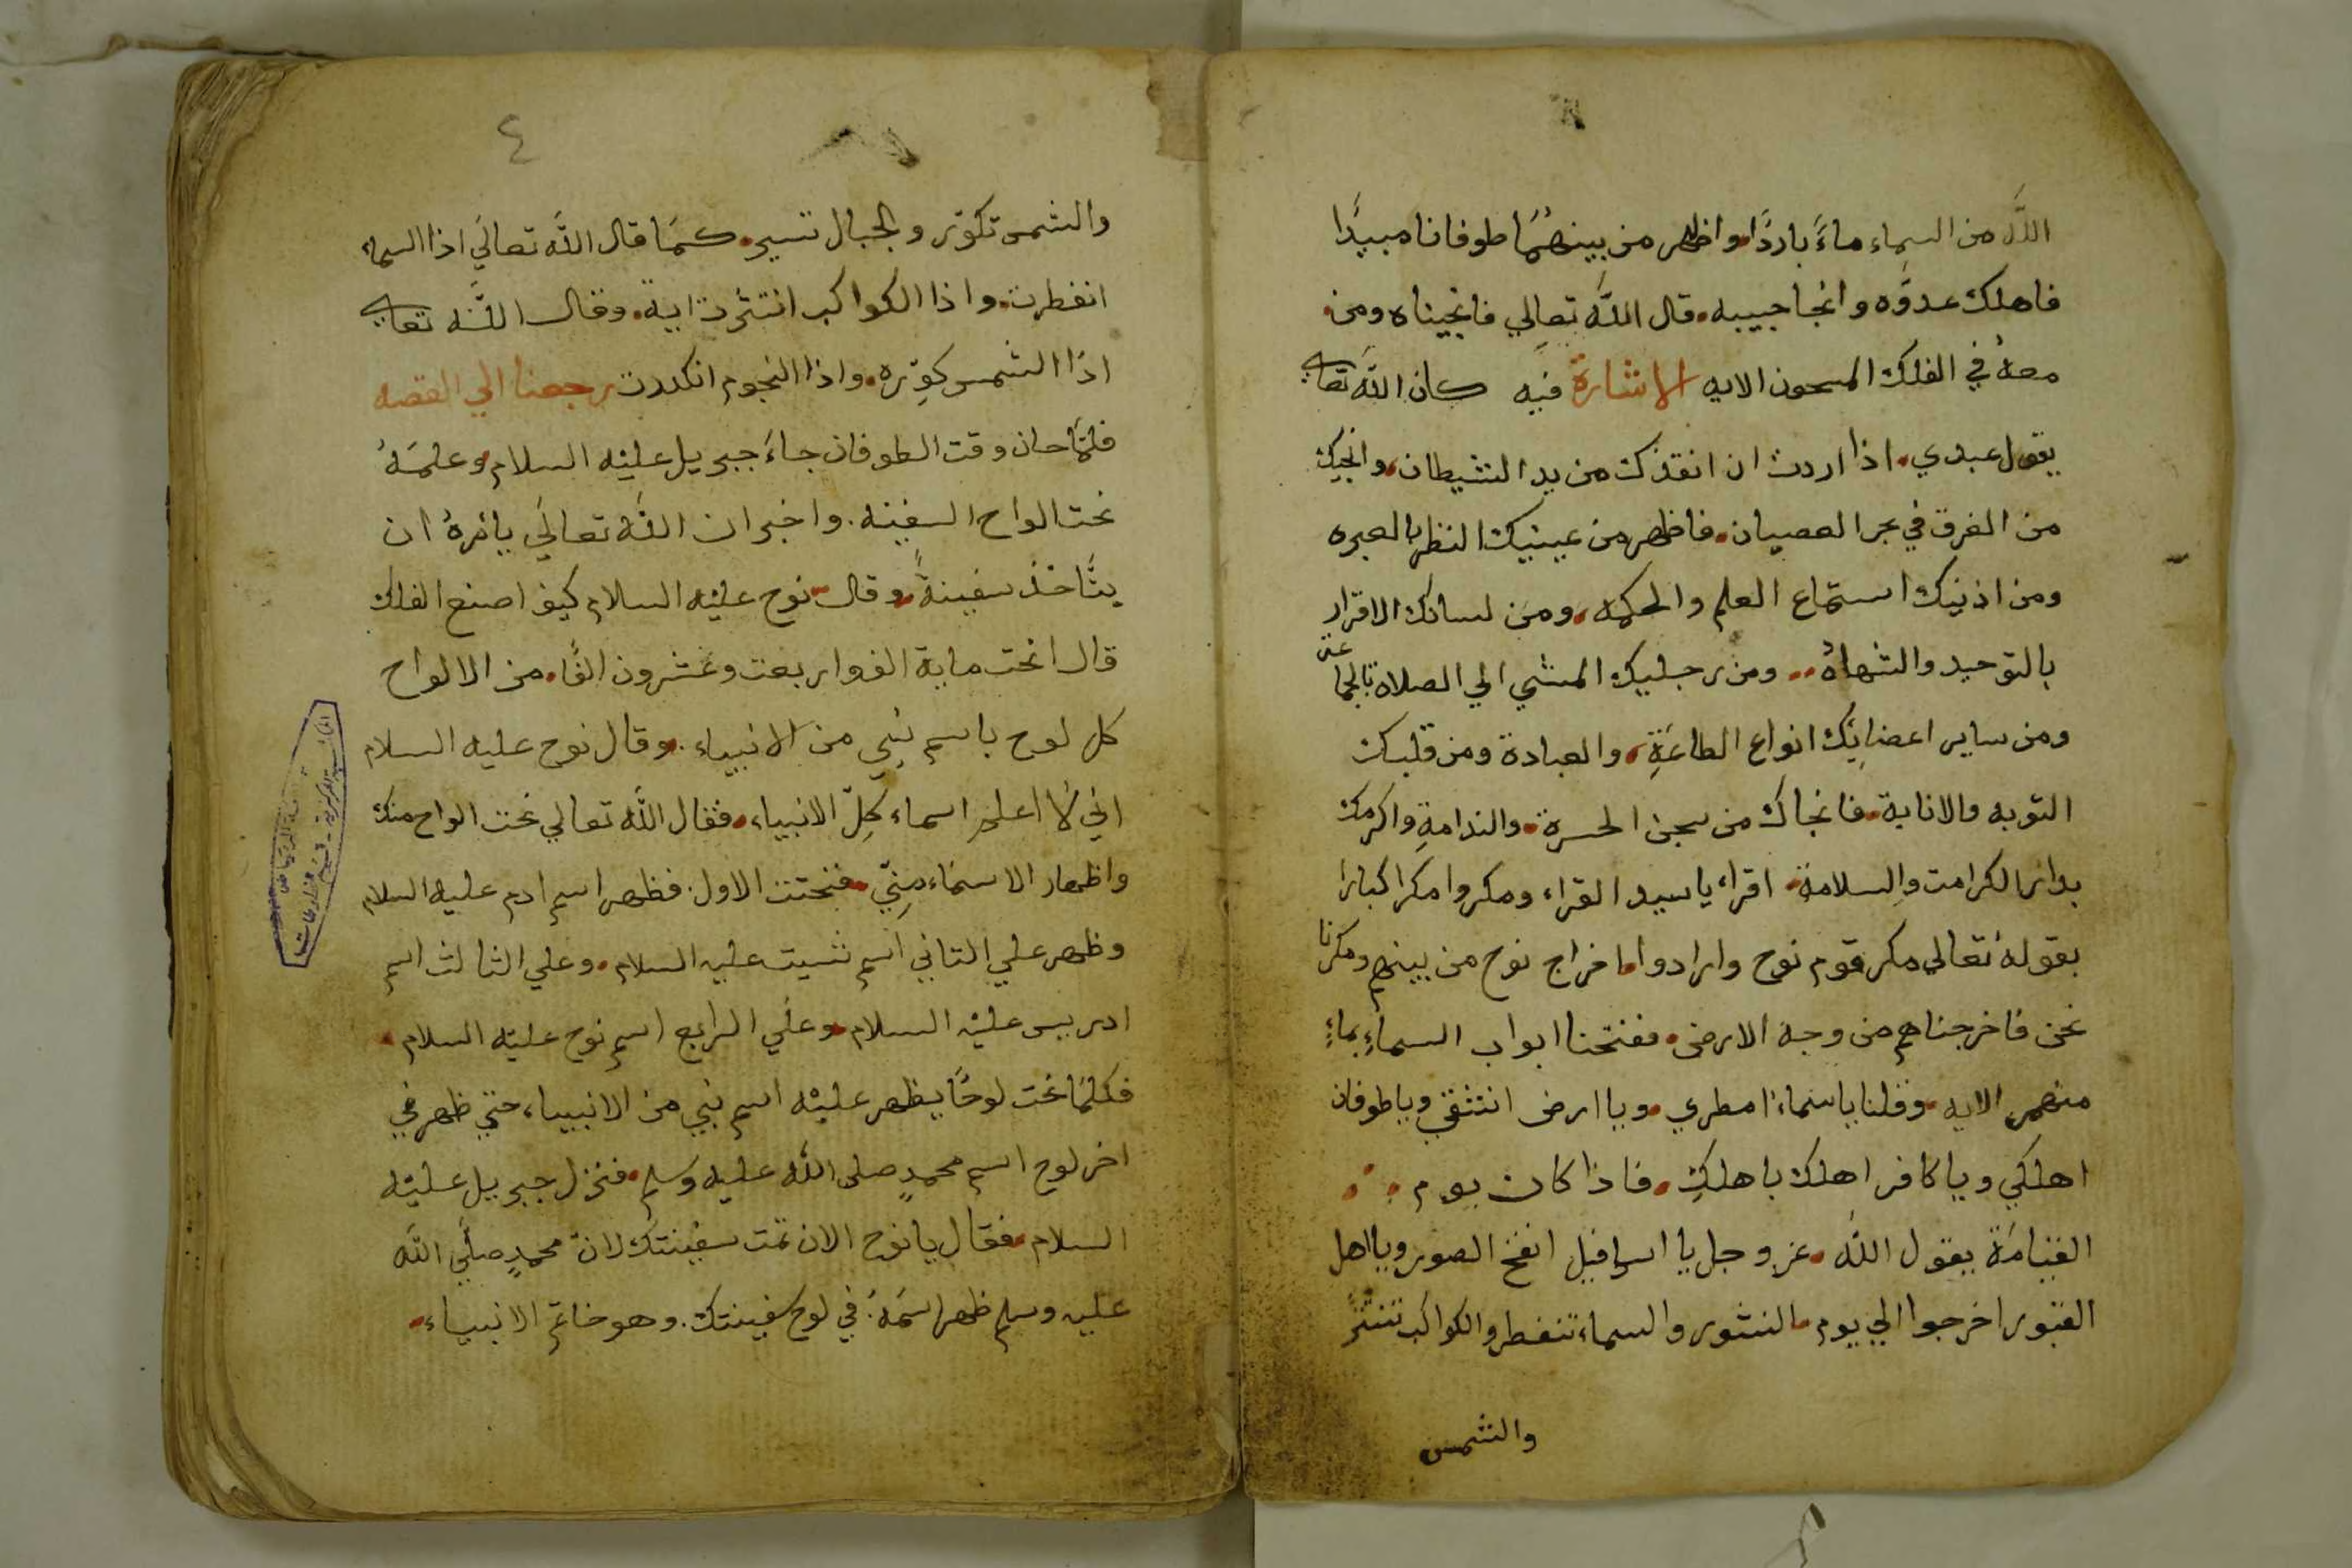 الله من السماء ماءً باردًا واظهر من بينهُمَا طوفانا مبيدًا
فاهلك عدوَّه وانجا حبيبه. قال الله تعالي فانجيناه ومن
معهُ في الفلك المسحون الايه الاشارة فيه كان الله تعالي
يقول عبدي. اذا اردت ان انقذك من يد الشيطان. وانجيك
من الغرق في بحر العصيان. فاظهر من عينيك النظر بالعبره
ومن اذنيك استماع العلم والحكمه. ومن لسانك الاقرار
بالتوحيد والشهاده.. ومن رجليك المشي الي الصلاة بالجماعة
ومن ساير اعضايك انواع الطاعَةِ. والعبادة ومن قلبك
التوبه والانابة. فانجاك من سجن الحسرة. والندامةِ واكرمك
بدار الكرامت والسلامة. اقراء ياسيد القراء ومكروا مكرا كبارا
بقوله تعالي مكر قوم نوح وارادوا اخراج نوح من بينهم ومكرنا
نحن فاخرجناهم من وجه الارض. ففتحنا ابواب السماءِ بماءٍ
منهمر الايه. وقلنا ياسماء امطري. ويا ارض انشقي ويا طوفان
اهلكي ويا كافر اهلك باهلكِ. فاذا كان يوم
القيامَة يقول الله. عز وجل يا اسرافيل انفخ الصور ويا اهل
القبور اخرجوا الي يوم النشور والسماء تنفطر والكواكب تنتثر
والشمس
٤
والشمس تكوّر والجبال تسير. كمَا قال الله تعاليَ اذا السماء
انفطرت. واذا الكواكب انتثرت اية. وقال الله تعالي
اذا الشمس كوِّره. واذا النجوم انكدرت رجعنا الي القصه
فلمَّا حان وقت الطوفان جاءَ جبريل عليْه السلام وعلمَهُ
نحت الواح السفينه. واخبر ان الله تعاليَ يامُرهُ ان
يتَّاخذ سفينةً. وقال نوح عليْه السلام كيف اصنع الفلك
قال انحت ماية الف واربعت وعشرون الفًا. من الالواح
كل لوح باسم نبي من الانبياء. وقال نوح عليه السلام
اني لا اعلم اسماء كلِّ الانبياء. فقال الله تعالي نحت الواح منك
واظهار الاسمَاء مِنِّي. فنحتت الاول. فظهر اسم ادم عليه السلام
وظهر علي التاني اسم شيت عليه السلام. وعلي الثالث اسم
ادريس عليْه السلام. وعلَي الرابع اسم نوح عليْه السلام.
فكلمَا نحت لوحًا يظهر عليْه اسم نبي من الانبياء، حتي ظهر في
اخر لوح اسم محمدٍ صلى الله عليه وسلم. فنزل جبريل عليْه
السلام. فقال يا نوح الان تمت سفينتك لانّ محمدٍ صلَّي الله
عليه وسلم ظهر اسمَهُ. في لوح سفينتك. وهو خاتم الانبياء.